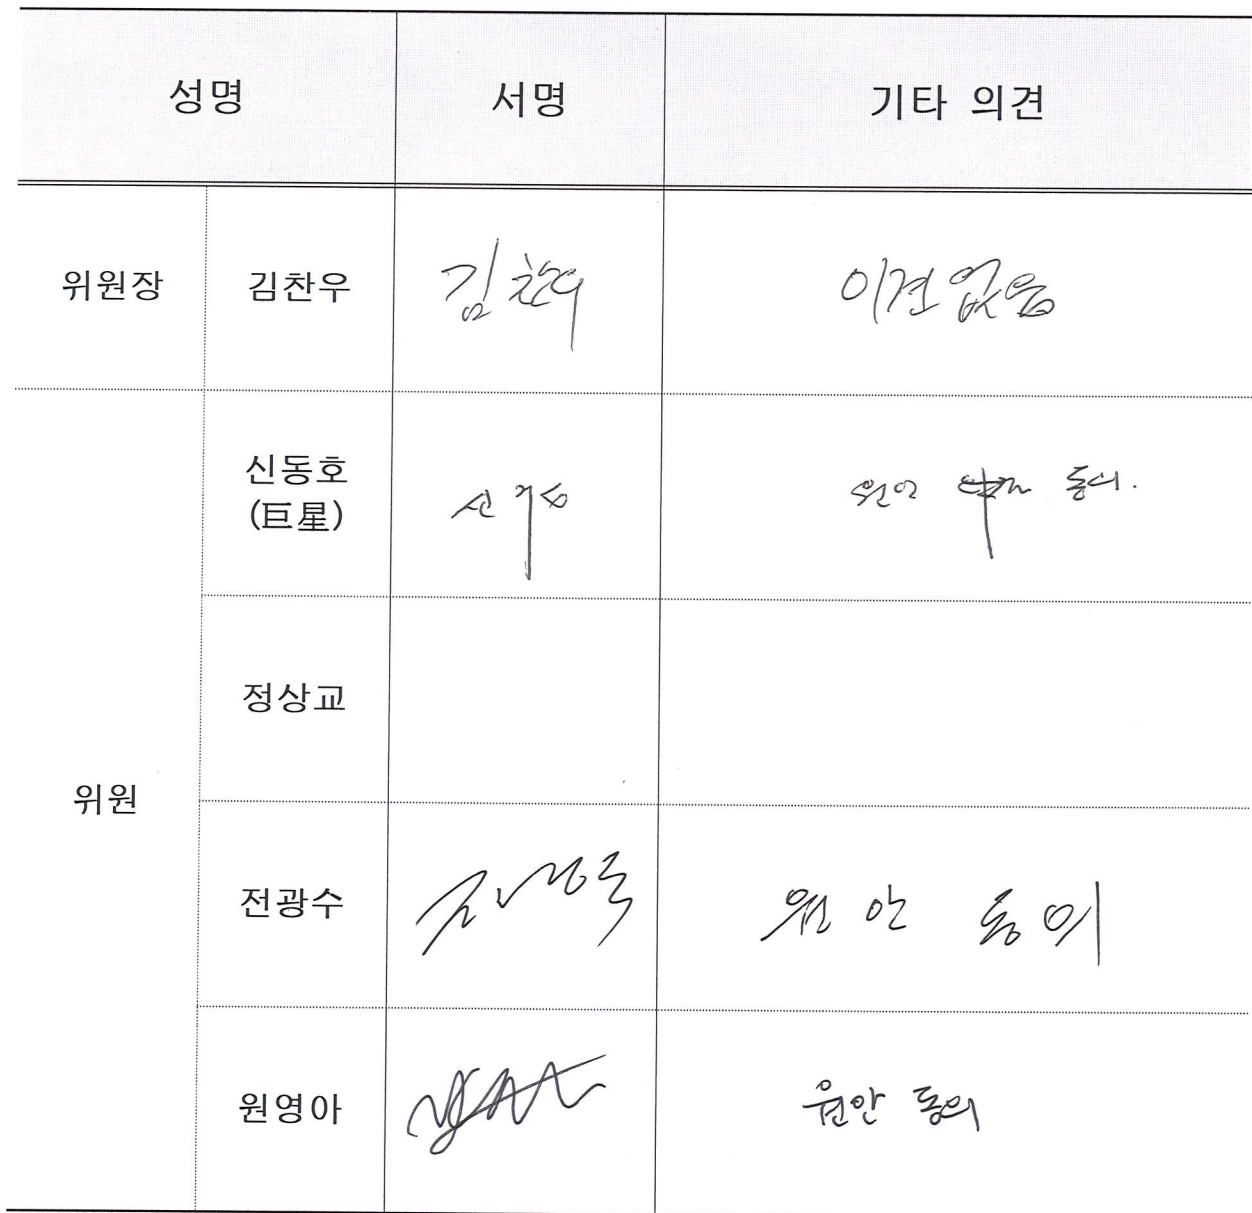 성명 서명 기타 의견
위원장 김찬우 김찬우 이견없음
신동호
(巨星)
원안 동의.
정상교
위원
전광수 원안 동의
원영아 원안 동의